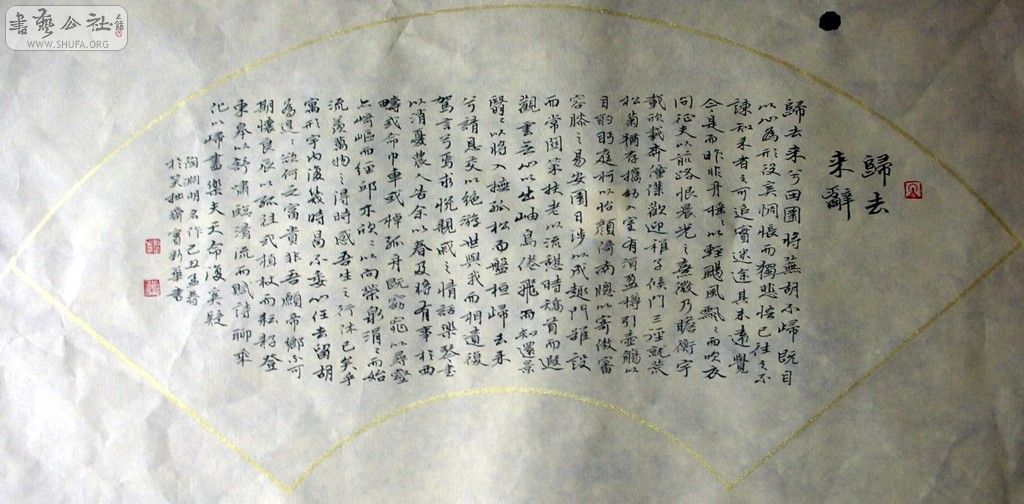 書藝公社
WWW.SHUFA.ORG
歸去
来辭
歸去来兮田園將蕪胡不歸既自
以心為形役奚惆悵而獨悲悟已往之不
諫知来者之可追實迷途其未遠覺
今是而昨非舟遙之以輕颺風飄之而吹衣
问征夫以前路恨晨光之熹微乃瞻衡宇
載欣載奔僮僕歡迎稚子候門三淫就荒
松菊猶存攜幼入室有酒盈樽引壺觴以
自酌眄庭柯以怡顏倚南牕以寄傲審
容膝之易安園日涉以成趣門雖設
而常関策杖老以流憩時矯首而遐
觀雲無心以出岫鳥倦飛而知還景
翳翳以將入撫孤松而盤桓歸去来
兮請息交以绝游世與我而相遺復
駕言兮焉求悦親戚之情話樂琴書
以消憂農人告余以春及將有事於西
疇或命巾車或棹孤舟既窈窕以尋壑
亦崎嶇而經邱木欣之以向榮泉涓之而始
流羨萬物之得時感吾生之行休已矣乎
寓形宇内復幾時曷不委心任去留胡
為遑之欲何之富貴非吾願帝鄉不可
期懷良辰以孤往或植杖而耘耔登
東皋以舒嘯臨清流而賦詩聊乘
化以歸盡樂夫天命復奚疑
陶淵明名作己丑